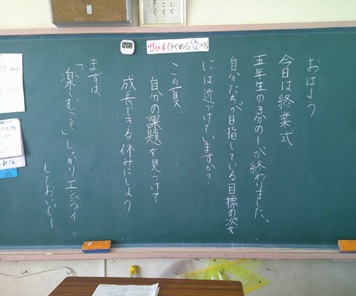 おはよう
今日は終業式
五年生の3分の1が終わりました。
自分たちが目指している目標の姿
には近づけていますか?
この夏、
自分の課題を見つけて
成長できる休みにしよう
まずは、
「楽しむこと」しっかりエンジョイ
しておいで〜